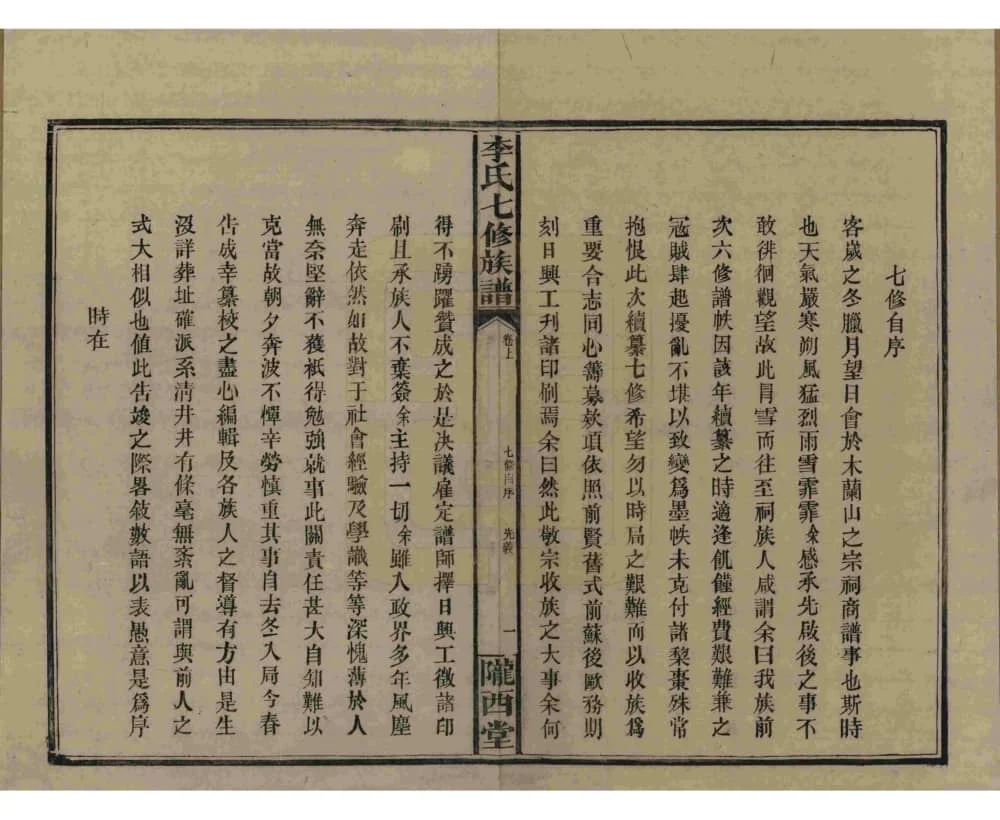 七修自序
客歲之冬臘月望日會於木蘭山之宗祠商譜事也斯時
也天氣嚴寒朔風猛烈雨雪霏霏余感承先啟後之事不
敢徘徊觀望故此冐雪而往至祠族人咸謂余曰我族前
次六修譜帙因該年續纂之時適逢飢饉經費艱難兼之
冦賊肆起擾亂不堪以致變爲墨帙未克付諸棃棗殊常
抱恨此次續纂七修希望勿以時局之艱難而以收族爲
重要合志同心籌募欵項依照前賢舊式前蘇後歐務期
刻日興工刋諸印刷焉余曰然此敬宗收族之大事余何
李氏七修族譜
卷上
七修自序
先義
一
隴西堂
得不踴躍贊成之於是决議雇定譜師擇日興工徵諸印
刷且承族人不棄簽余主持一切余雖入政界多年風塵
奔走依然如故對于社會經驗及學識等等深愧薄於人
無奈堅辭不獲祇得勉強就事此關責任甚大自知難以
克當故朝夕奔波不憚辛勞慎重其事自去冬入局今春
告成幸纂校之盡心編輯及各族人之督導有方由是生
沒詳葬址確派系淸井井有條毫無紊亂可謂與前人之
式大相似也値此告竣之際畧敍數語以表愚意是爲序
時在